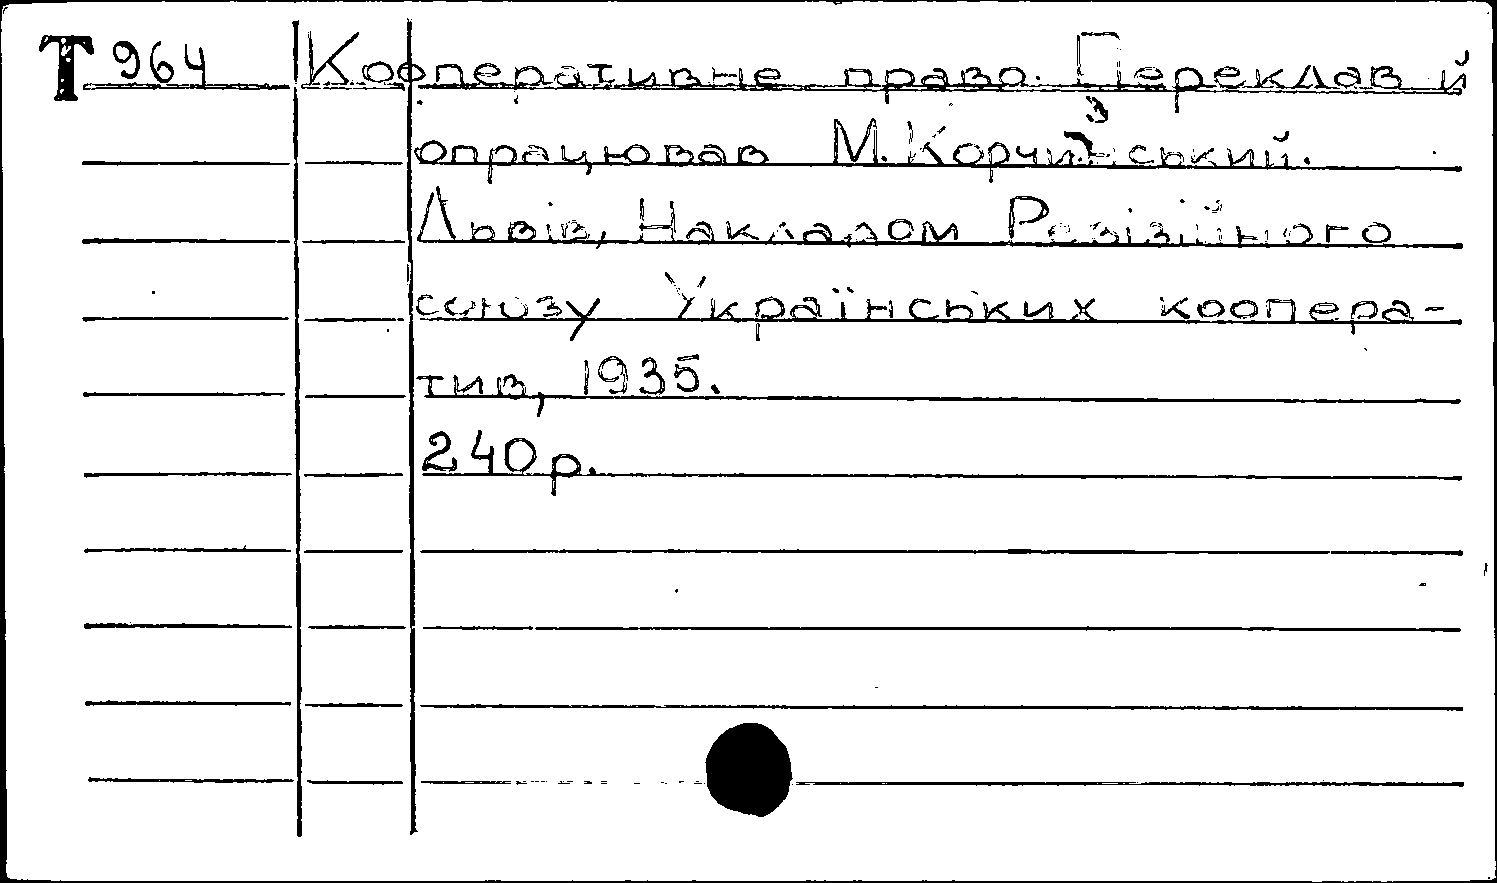 T 964 Кооперативне право. Переклав й
опрацював М. Корчинський.
Львів, Накладом Ревізійного
союзу Українських коопера-
тив, 1935.
240 р.